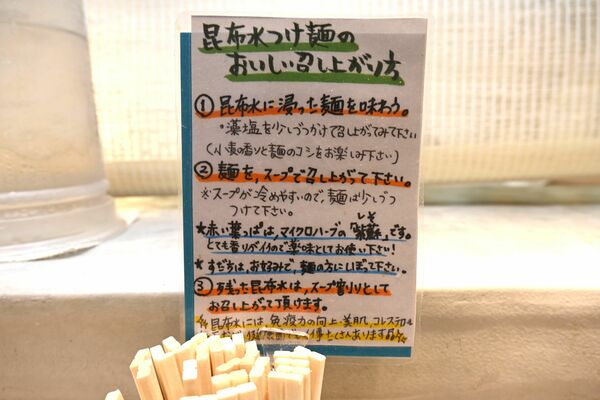 昆布水つけ麺の
おいしい召し上がり方
① 昆布水に浸った麺を味わう。
・藻塩を少しづつかけて召し上がてみて下さい
(小麦の香りと麺のコシをお楽しみ下さい)
② 麺を、スープで召し上がって下さい。
※スープが冷めやすいので、麺は少しづつ
つけて下さい。
★赤い葉っぱは、マイクロハーブの「紫蘇」です。
しそ
とても香りがイイので薬味としてお使い下さい!
★すだちは、お好みで、麺の方にしぼって下さい。
③ 残った昆布水は、スープ割りとして
お召し上がって頂けます。
昆布水には、免疫力の向上・美肌、コレステロール
たくさんあります